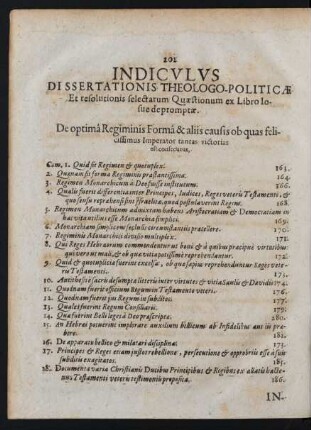 201
INDICVLVS
DISSERTATIONIS THEOLOGO-POLITICÆ
Et resolutionis selectarum Quæstionum ex Libro Io-
sue depromptæ.
De optimâ Regiminis Formâ & aliis causis ob quas feli-
cissimus Imperator tantas victorias
sit consecutus.
Com. 1. Quid sit Regimen & quotuplex. 163.
2. Quænam sit forma Regiminis præstantissima. 164.
3. Regimen Monarchicum à Deo fuisse institutum. 166.
4. Qualis fuerit differentia inter Principes, Iudices, Reges veteris Testamenti, &
quo sensu reprehensi sint Israëlitæ, quod postulaverint Regem. 168.
5. Regimen Monarchicum admixtum habens Aristocratiam & Democratiam in
hac vita utilius esse Monarchia simplici.
6. Monarchiam simplicem seclusis circumstantiis præcellere. 170.
7. Regiminis Monarchici divisio multiplex.
8. Qui Reges Hebræorum commendentur ut boni & à quibus præcipuè virtutibus:
qui verò ut mali, & ob quæ vitia potissimè reprehendantur. 172.
9. Quid & quotuplicia fuerint excelsa, ob quæ sæpius reprehenduntur Reges vete-
ris Testamenti. 173.
10. Antithesis sacra desumpta litteris inter virtutes & vitia Saulis & Davidis 174.
11. Quodnam fuerit officium Regum in Testamento veteri. 176.
12. Quodnam fuerit jus Regum in subditos. 177.
13. Quales fuerint Regum Consiliarii. 179.
14. Quæ fuerint Belli leges à Deo præscriptæ. 280.
15. An Hebræi potuerint implorare auxilium bellicum ab Infidelibus aut iis præ-
bere. 182.
16. De apparatu bellico & militari disciplina. 173.
17. Principes & Reges etiam justos rebellione, persecutione & opprobriis esse à suis
subditis exagitatos. 185.
18. Documenta varia Christianis Ducibus Principibus & Regibus ex allatis hacte-
nus Testamenti veteris testimoniis proposita. 186.
IN-